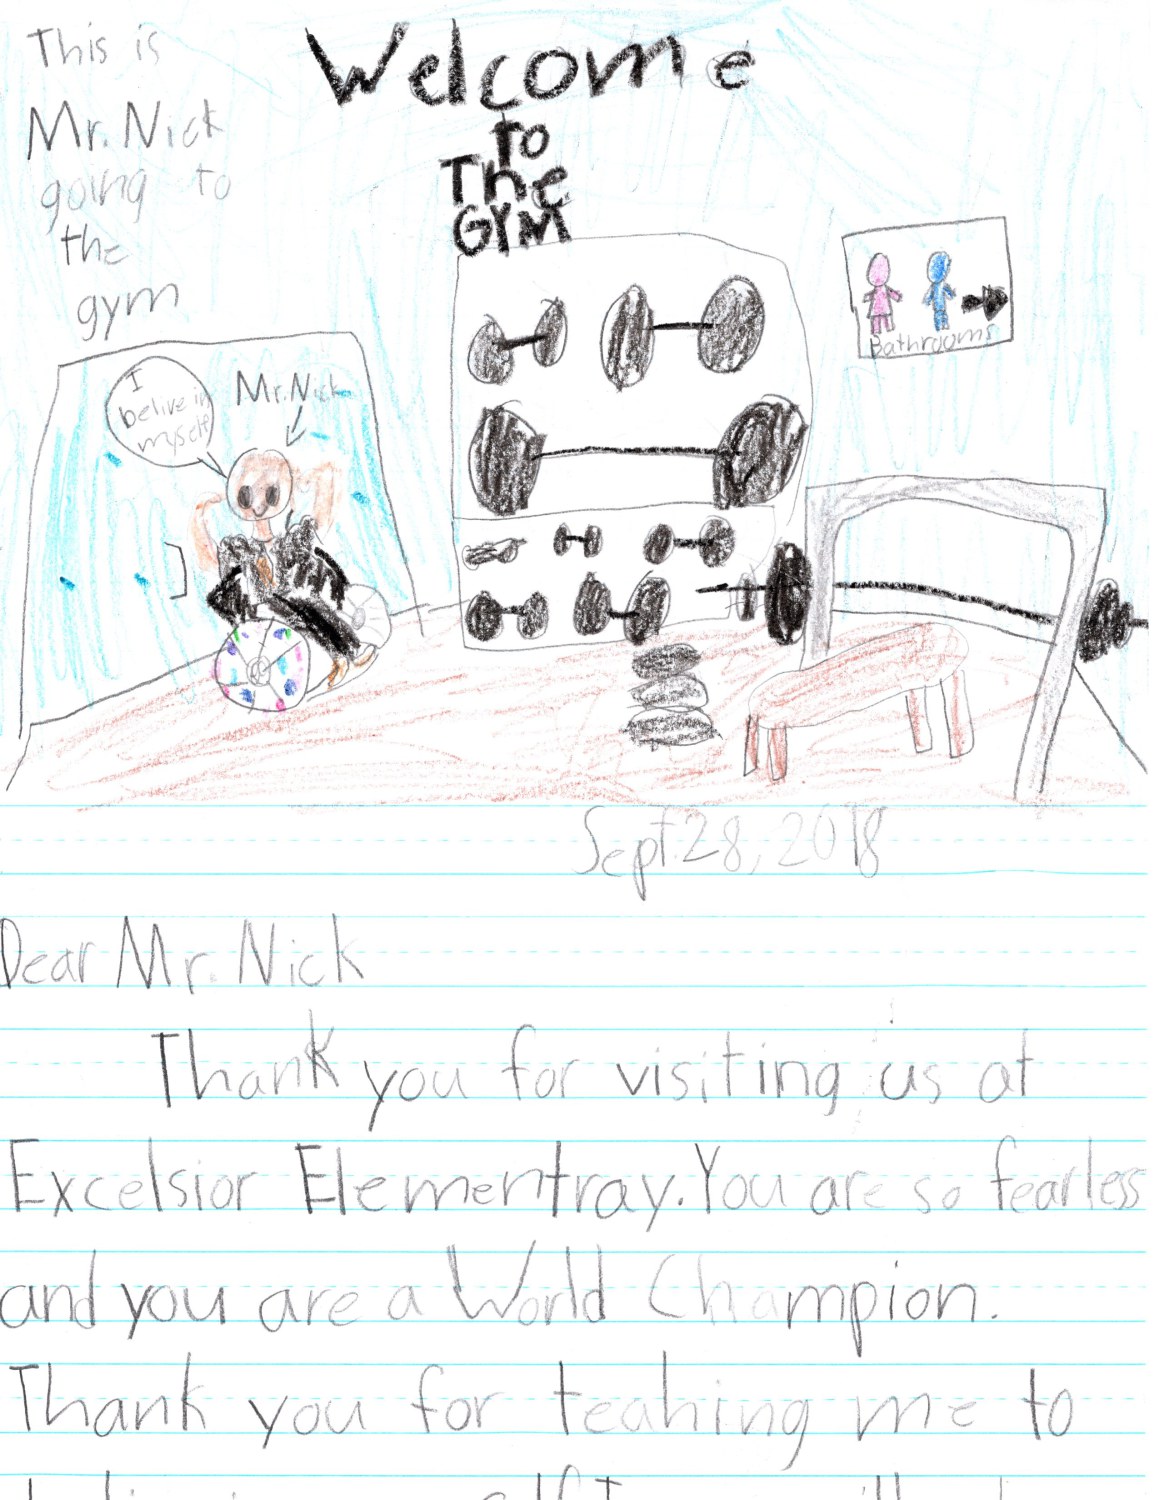 This is
Mr. Nick
going to
the
gym
Welcome
to
The
GYM
Bathrooms
I
belive in
myself
Mr. Nick
Sept. 28, 2018
Dear Mr. Nick
Thank you for visiting us at
Excelsior Elementray. You are so fearless
and you are a World Champion.
Thank you for teahing me to